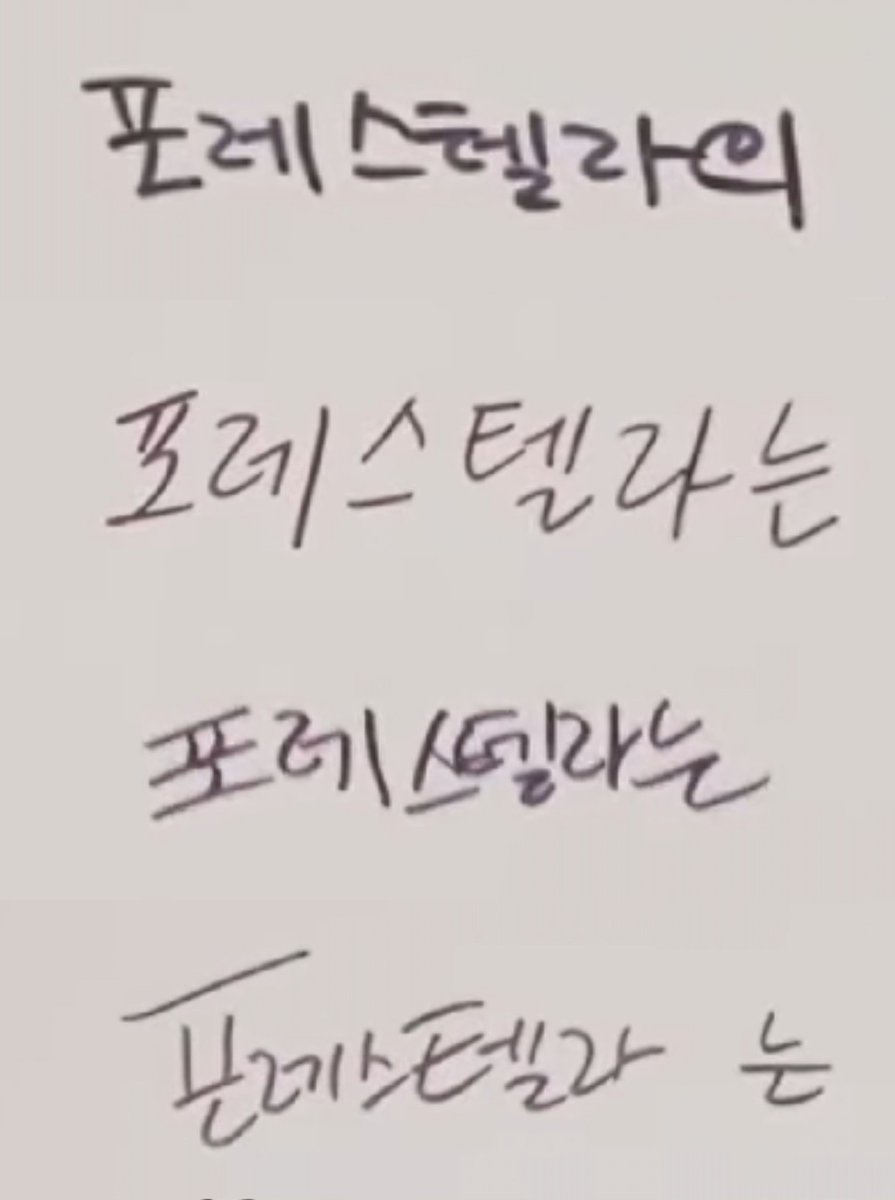 포레스텔라의
포레스텔라는
포레스텔라는
포레스텔라 는